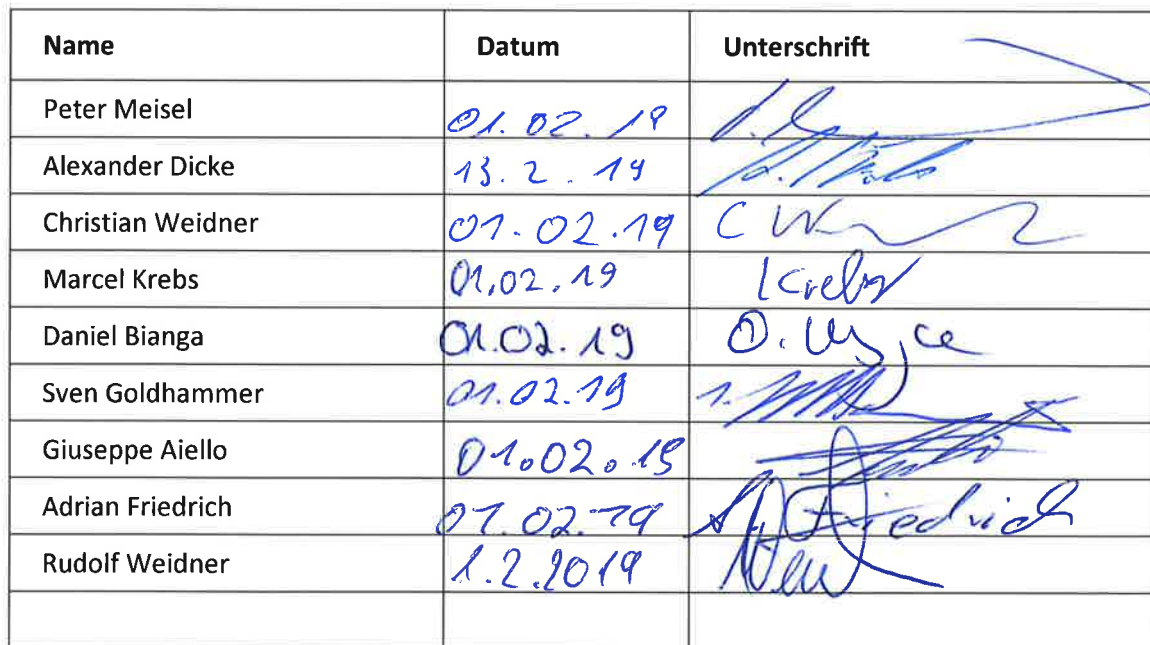 Name Datum Unterschrift
Peter Meisel 01.02.19
Alexander Dicke 13.2.19
Christian Weidner 01.02.19
Marcel Krebs 01.02.19 Krebs
Daniel Bianga 01.02.19
Sven Goldhammer 01.02.19
Giuseppe Aiello 01.02.19
Adrian Friedrich 01.02.19 A. Friedrich
Rudolf Weidner 1.2.2019